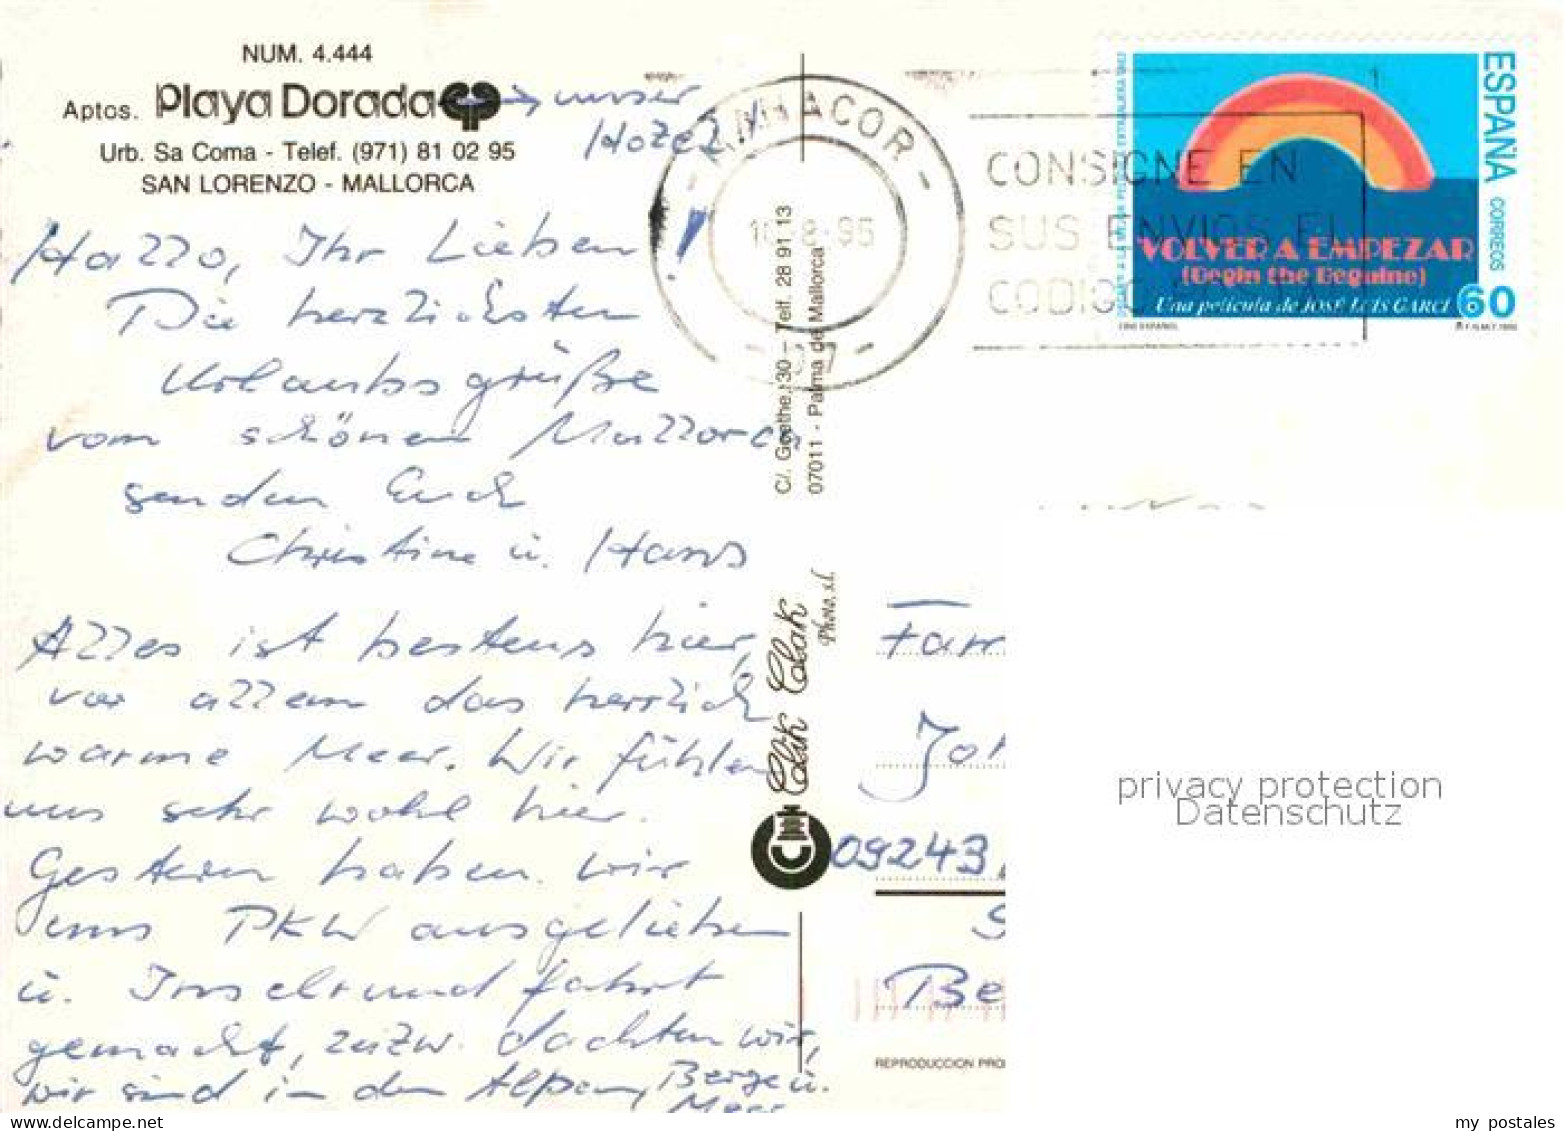 NUM. 4.444
Aptos. Playa Dorada → unser
Hotel!
Urb. Sa Coma - Telef. (971) 81 02 95
SAN LORENZO - MALLORCA
Hallo, Ihr Lieben!
Die herzlichsten
Urlaubsgrüße
vom schönen Mallorca
senden Euch
Christine u. Hans
Alles ist bestens hier,
vor allem das herrlich
warme Meer. Wir fühlen
uns sehr wohl hier.
Gestern haben wir
uns PKW ausgeliehen
u. Inselrundfahrt
gemacht, zeitw. dachten wir,
wir sind in den Alpen, Berge u.
Meer
C/. Goethe, 30 – Telf. 28 91 13
07011 - Palma de Mallorca
Clik Clak
Photo, s.l.
MANACOR
8-95
07
CONSIGNE EN
SUS ENVIOS EL
CODIGO
ESPAÑA CORREOS
VOLVER A EMPEZAR
(Begin the Beguine)
Una película de JOSÉ LUIS GARCI
60
CINE ESPAÑOL
Fam
Joh
09243
S
Be
REPRODUCCION PRO
privacy protection
Datenschutz
my postales